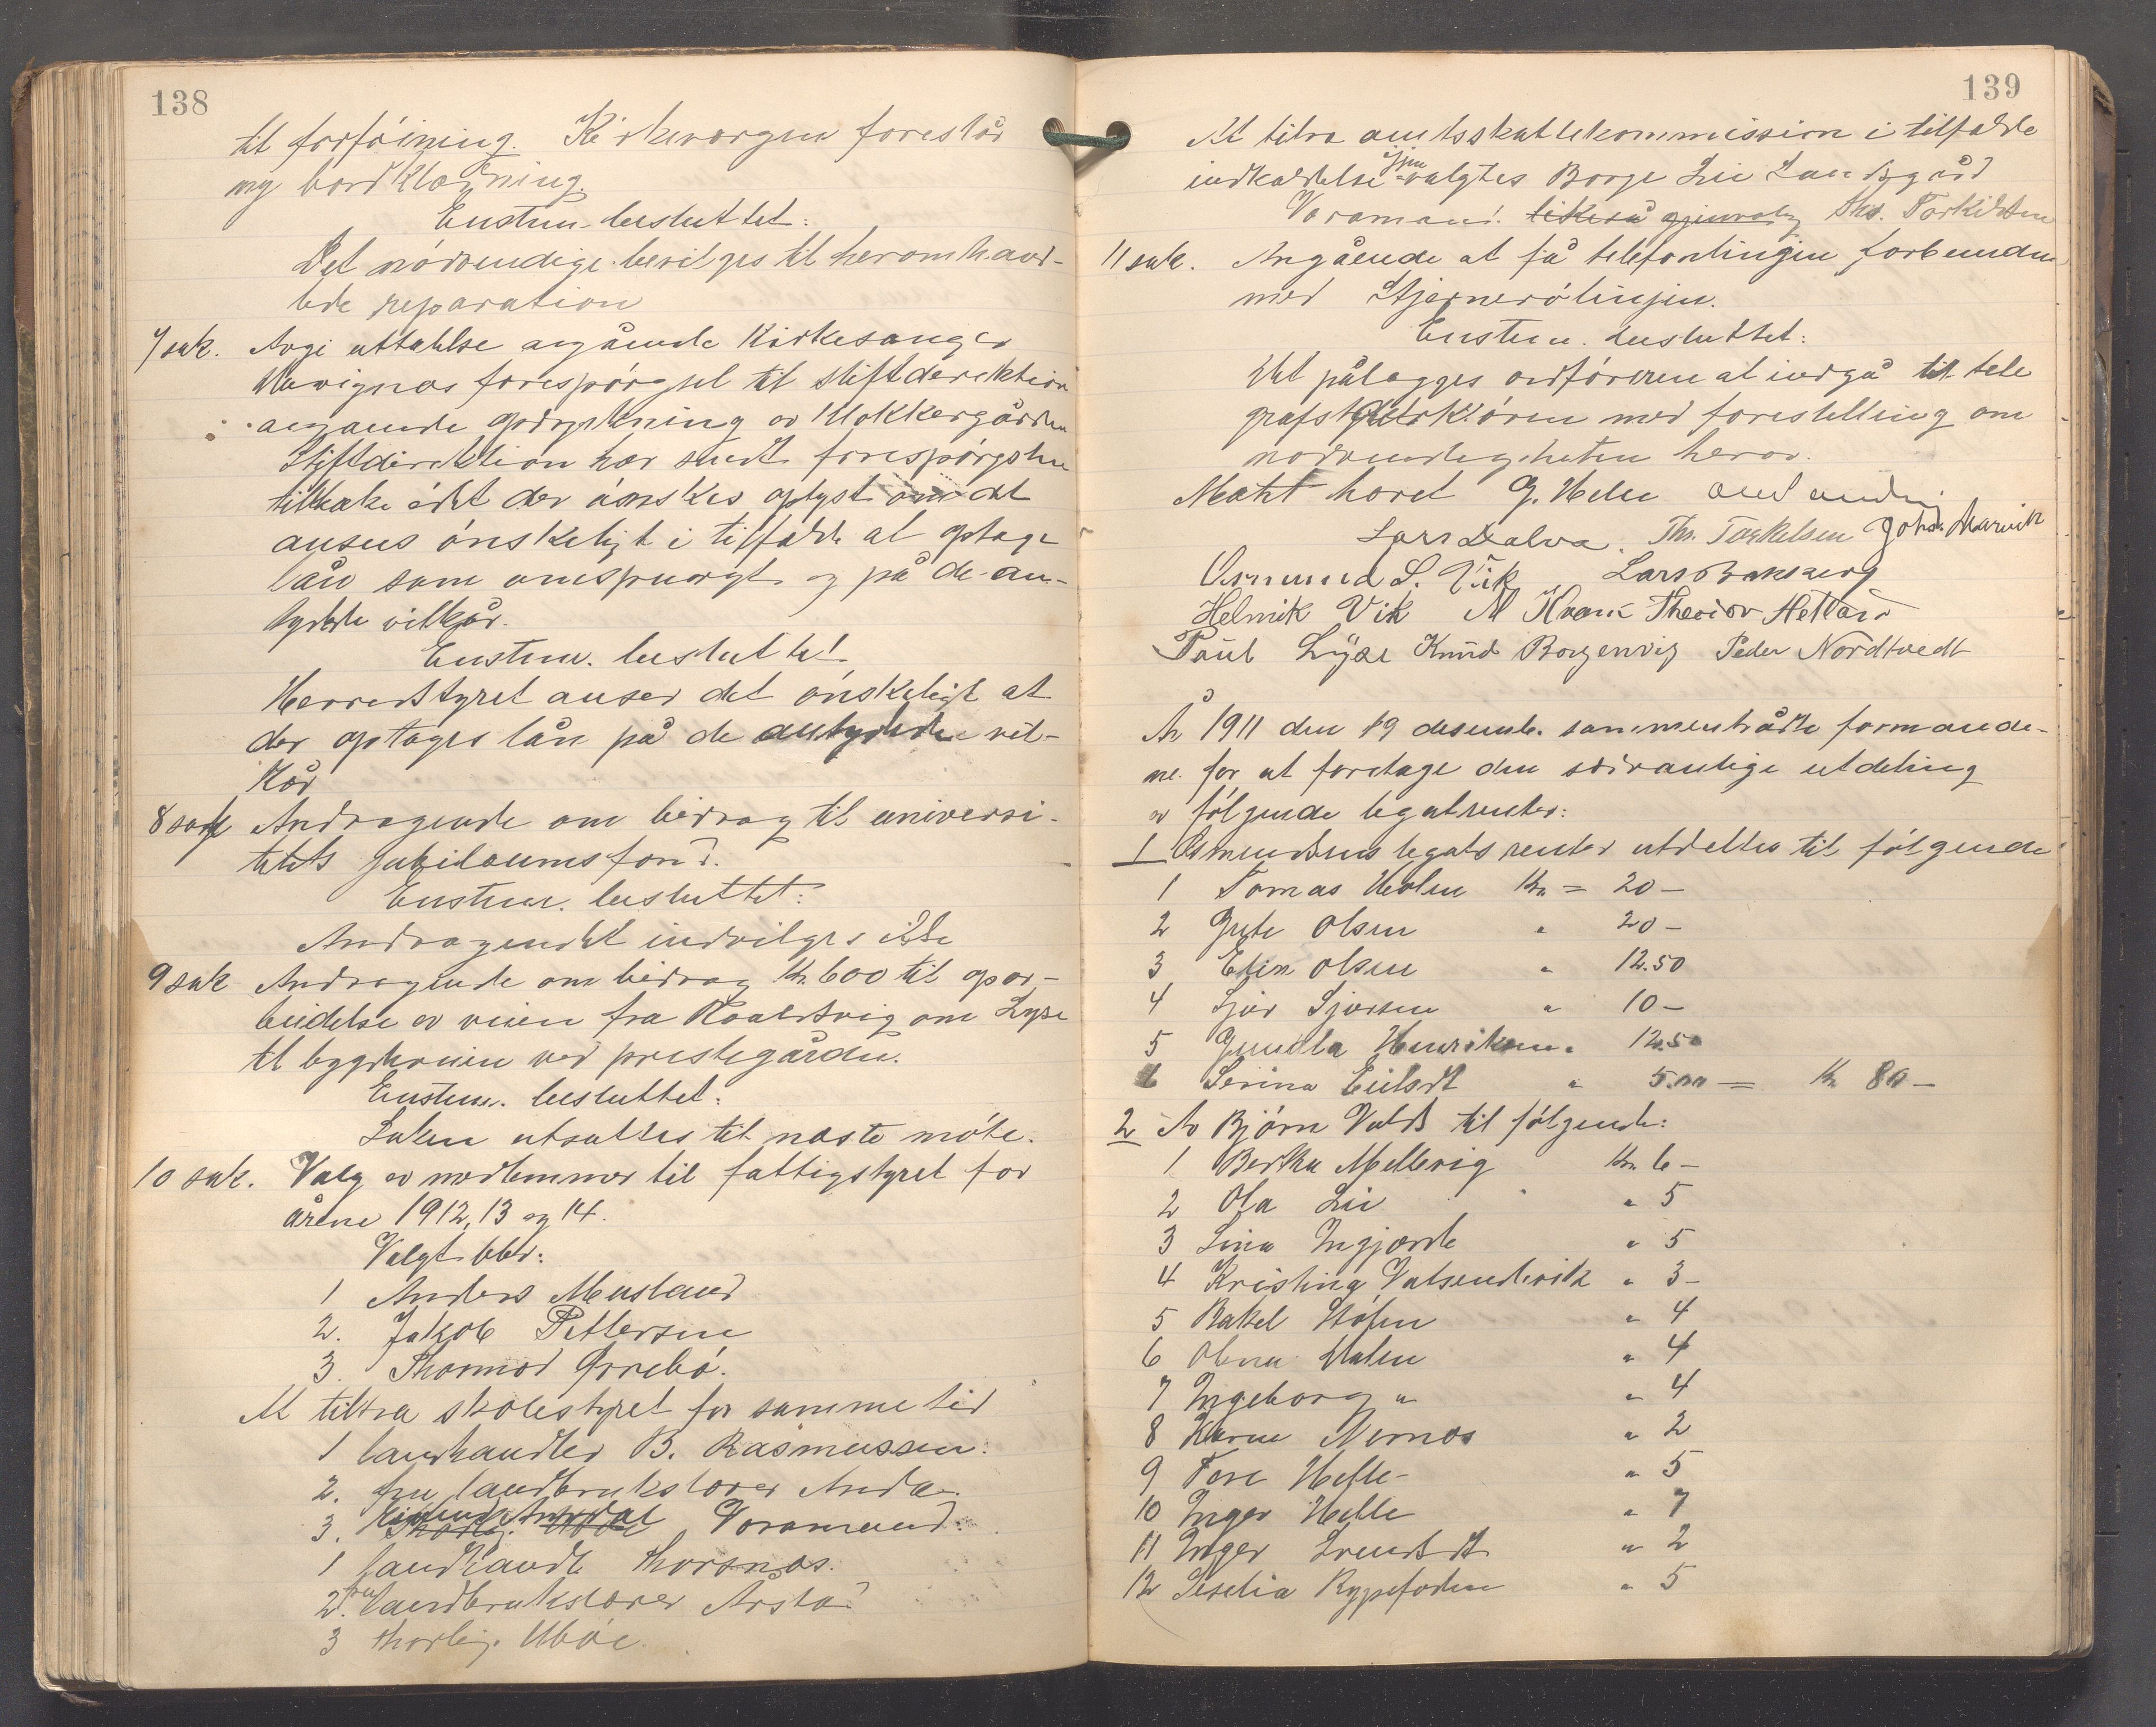 138
til forföining. Kirkevergen foreslår
ny bordklædning.
Enstem. besluttet:
Det nödvendige bevilges til heromhand-
lede reparation
7 sak. Avgi uttalelse angående Kirkesanger
forespörgsel til stiftdirektion
angående opdyrkning av Klokkergården
Stiftdirektion har sendt forespörgslen
tilbake idet der önskes oplyst om det
ansees önskeligt i tilfælde at optage
lån som omspurgt og på de an-
tydede vilkår.
Enstem. besluttet
Herredstyret anser det önskeligt at
der optages lån på de antydede vil-
kår
8 sak Andragende om bidrag til universi-
tetets jubilæumsfond.
Enstem. besluttet:
Andragendet indvilges ikke
9 sak Andragende om bidrag Kr. 600 til opar-
beidelse av veien fra Roaldsvig om Lyse
til bygdeveien ved prestegården.
Enstem. besluttet:
Saken utsattes til næste möte.
10 sak. Valg av medlemmer til fattigstyret for
årene 1912, 13 og 14.
Valgt blev:
1 Anders Meusland
2. Jakob Pettersen
3. Thormod Örrebö.
At tiltra skolestyret for samme tid
1 landhandler B. Rasmussen.
2. fru landbrukslærer Anda.
3. Varamænd:
1 landhandl. Thorsnæs.
2. fru landbrukslærer Årstad
3 Thorleif Uböe.
139
At tiltra amtsskattekommission i tilfælde
indkaldelse igjen valgtes Borge Lie Landsgård
Varamand. likeså gjenvalg Ths. Torkildsen
11 sak. Angående at få telefonlinjen forbunden
med Stjernerölinjen.
Enstem. besluttet:
Det pålægges ordföreren at indgå til tele
grafdirektören med forestilling om
nödvendigheten herav.
Mötet hævet G. Helle
Lars Dalva. Ths. Torkelsen Johs. Marvik
Osmund S. Vik Lars Bakseng
Helmik Vik M Kvam Theodor Hetland
Paul Lyse Knud Borgenvig Peder Nordtvedt
År 1911 den 19 desemb. sammentrådte formænde-
ne for at foretage den sedvanlige utdeling
av fölgende legatrenter:
1 Osmundsens legats renter utdeltes til fölgende
1 Tomas Holen Kr = 20 —
2 Grete Olsen " 20 —
3 Elin Olsen " 12.50
4 Sjur Sjursen " 10 —
5 Gundla Henriksen " 12.50
6 Serina Eiteldt " 5.00 = Kr 80 —
2 Av Björn Valds til fölgende:
1 Bertha Mellevig Kr. 6 —
2 Ola Lie " 5
3 Lina Ingjerde " 5
4 Kristina Vatsendvik " 3 —
5 Rakel Stölen " 4
6 Olena Halen " 4
7 Ingeborg " " 4
8 Karen Nernæs " 2
9 Tore Helle " 5
10 Inger Helle " 7
11 Inger " 2
12 Seselia Rypefoden " 5